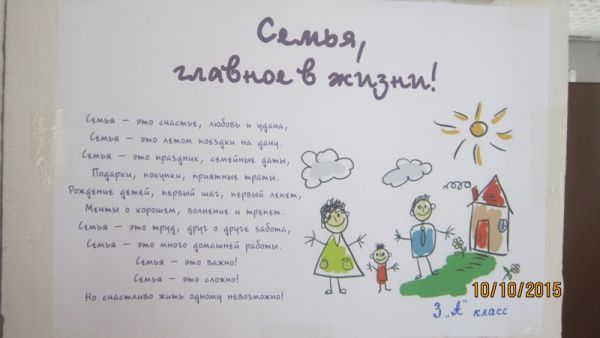 Семья,
главное в жизни!
Семья – это счастье, любовь и удача,
Семья – это летом поездки на дачу.
Семья – это праздник, семейные даты,
Подарки, покупки, приятные траты.
Рождение детей, первый шаг, первый лепет,
Мечты о хорошем, волнение и трепет.
Семья – это труд, друг о друге забота,
Семья – это много домашней работы.
Семья – это важно!
Семья – это сложно!
Но счастливо жить одному невозможно!
10/10/2015
3 „А" класс